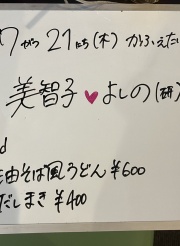 7がつ21にち(木)かふぇたい
美智子♥よしの(研)
d
油そば風うどん¥600
だしまき¥400